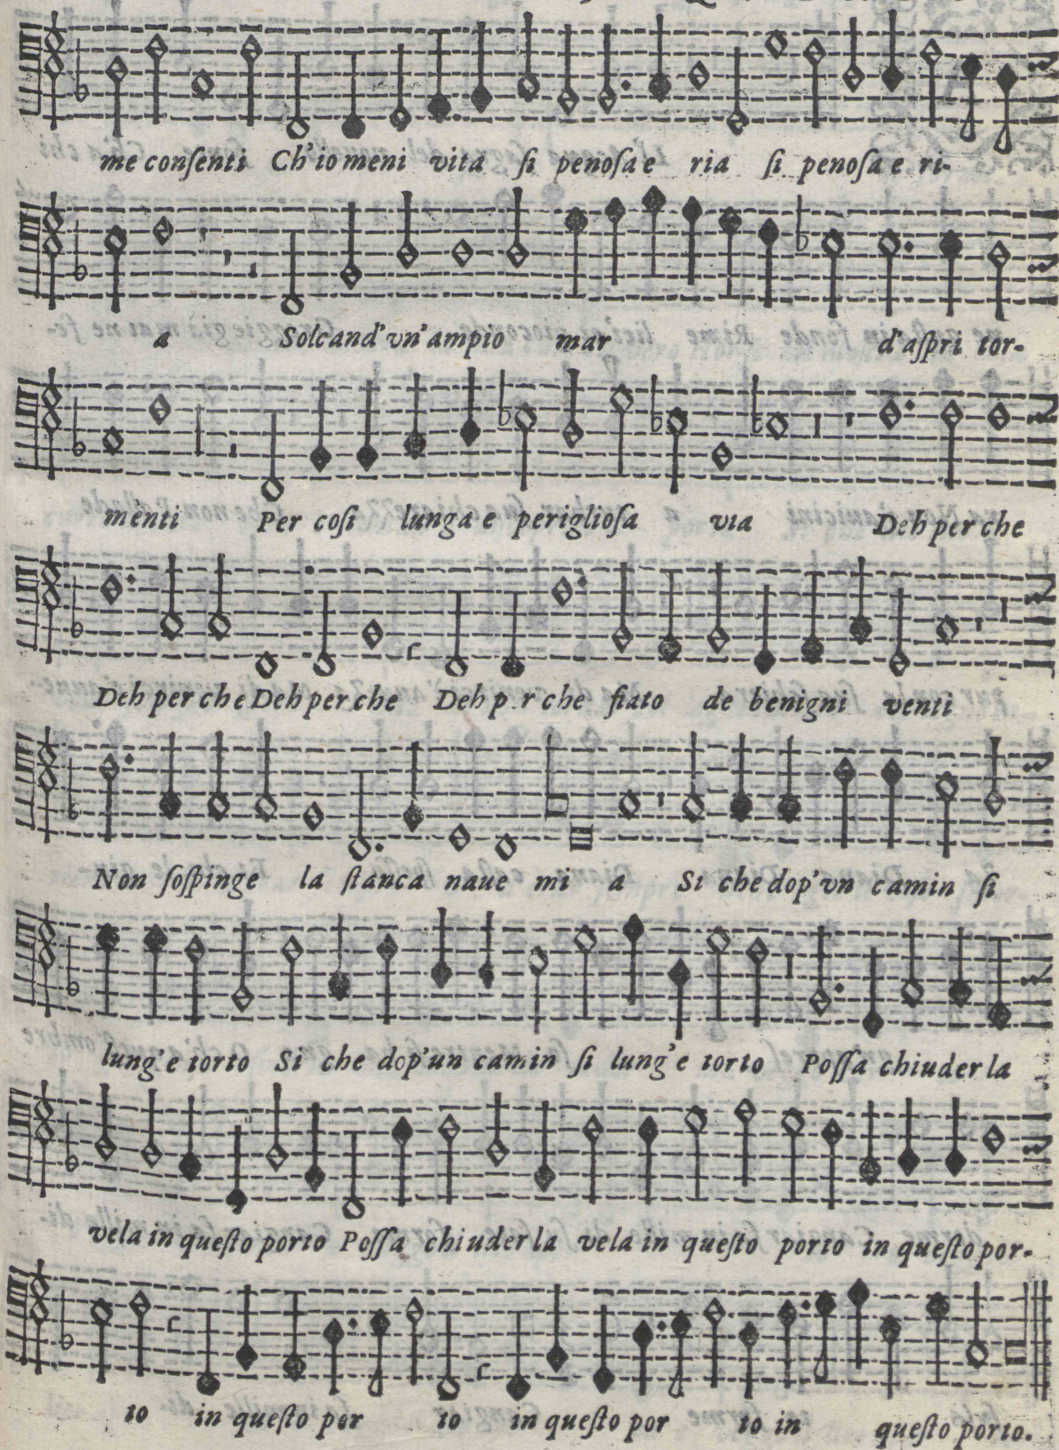 me conſenti Ch'io meni vita ſi penoſa e ria ſi penoſa e ri-
a Solcand'vn'ampio mar d'aſpri tor-
menti Per coſi lunga e periglioſa via Deh per che
Deh per che Deh per che Deh p r che fiato de benigni venti
Non ſoſpinge la ſtanca naue mi a Si che dop'vn camin ſi
lung'e torto Si che dop'un camin ſi lung'e torto Poſſa chiuder la
vela in queſto porto Poſſa chiuder la vela in queſto porto in queſto por-
to in queſto por to in queſto por to in queſto porto.